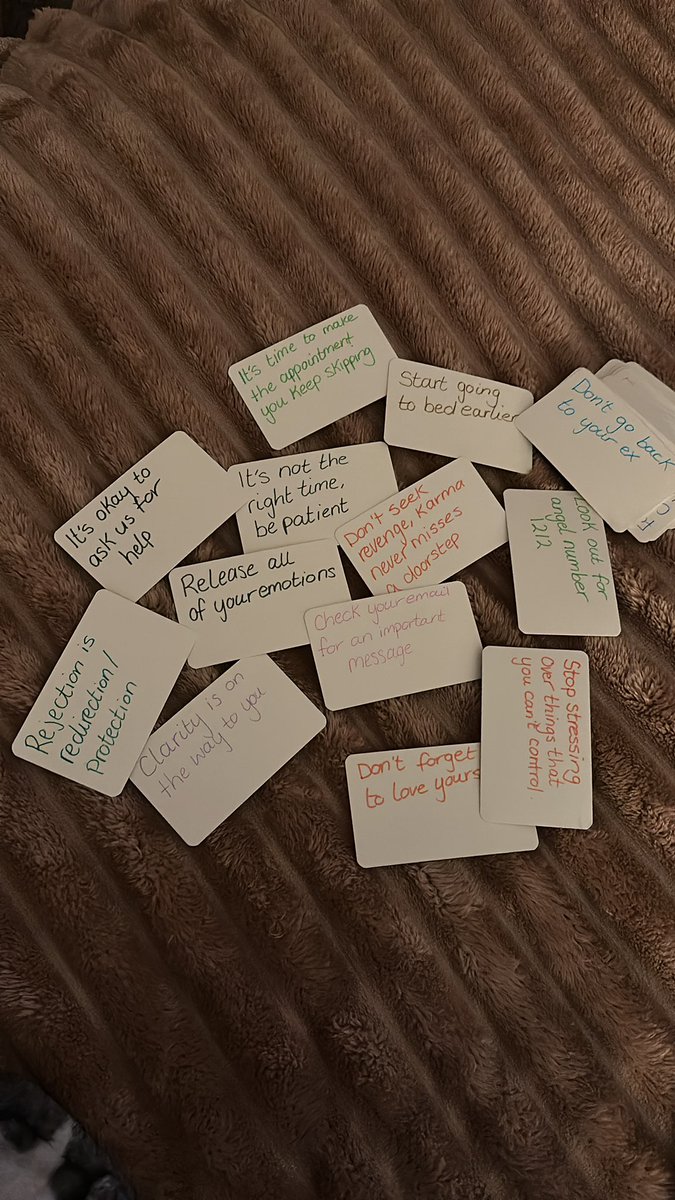 It's time to make
the appointment
you keep skipping
Start going
to bed earlier
Don't go back
to your ex
It's okay to
ask us for
help
It's not the
right time,
be patient
Don't seek
revenge, karma
never misses
a doorstep
Look out for
angel number
1212
Release all
of your emotions
Check your email
for an important
message
Rejection is
redirection/
protection
Clarity is on
the way to you
Stop stressing
over things that
you can't control.
Don't forget
to love yours